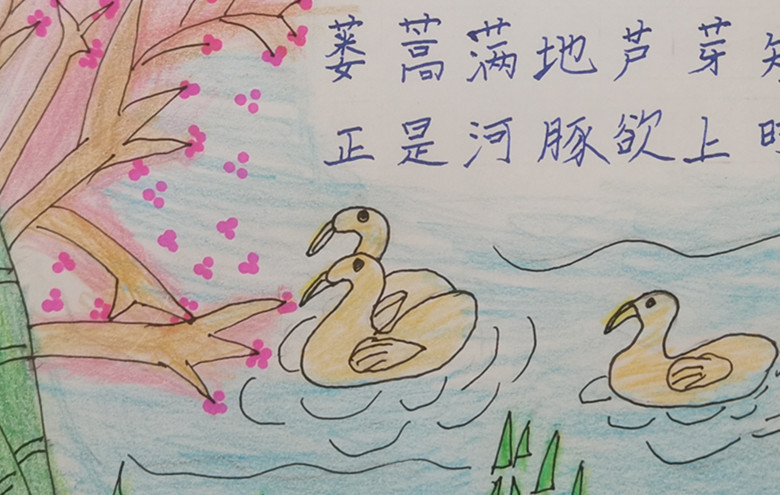 蒌蒿满地芦芽
正是河豚欲上